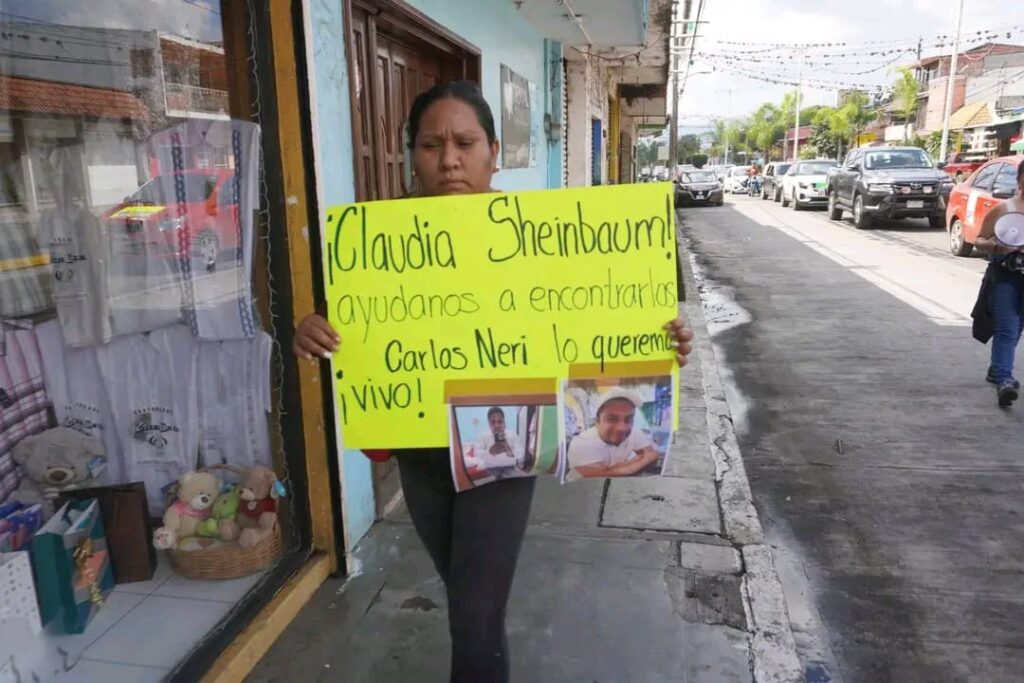 ¡Claudia Sheinbaum!
ayudanos a encontrarlos
Carlos Neri lo querem
¡vivo!